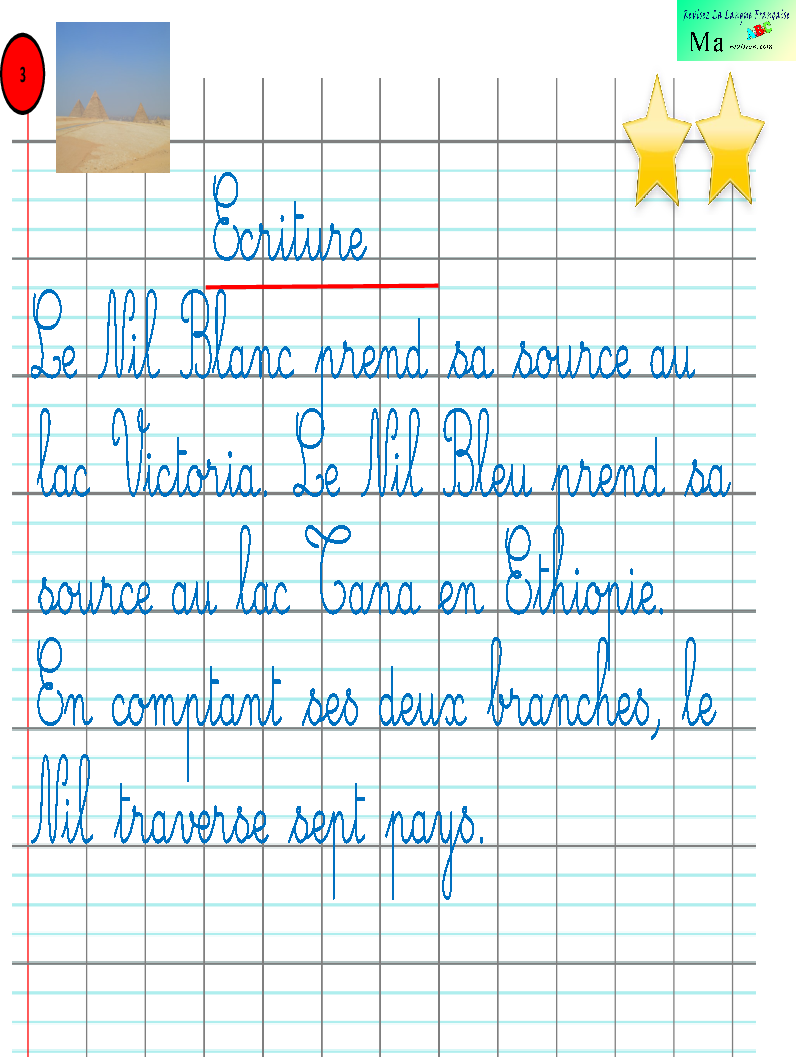 Revisez La Langue Française
3
Ma
Ecriture
Le Nil Blanc prend sa source au
lac Victoria. Le Nil Bleu prend sa
source au lac Tana en Ethiopie.
En comptant ses deux branches, le
Nil traverse sept pays.